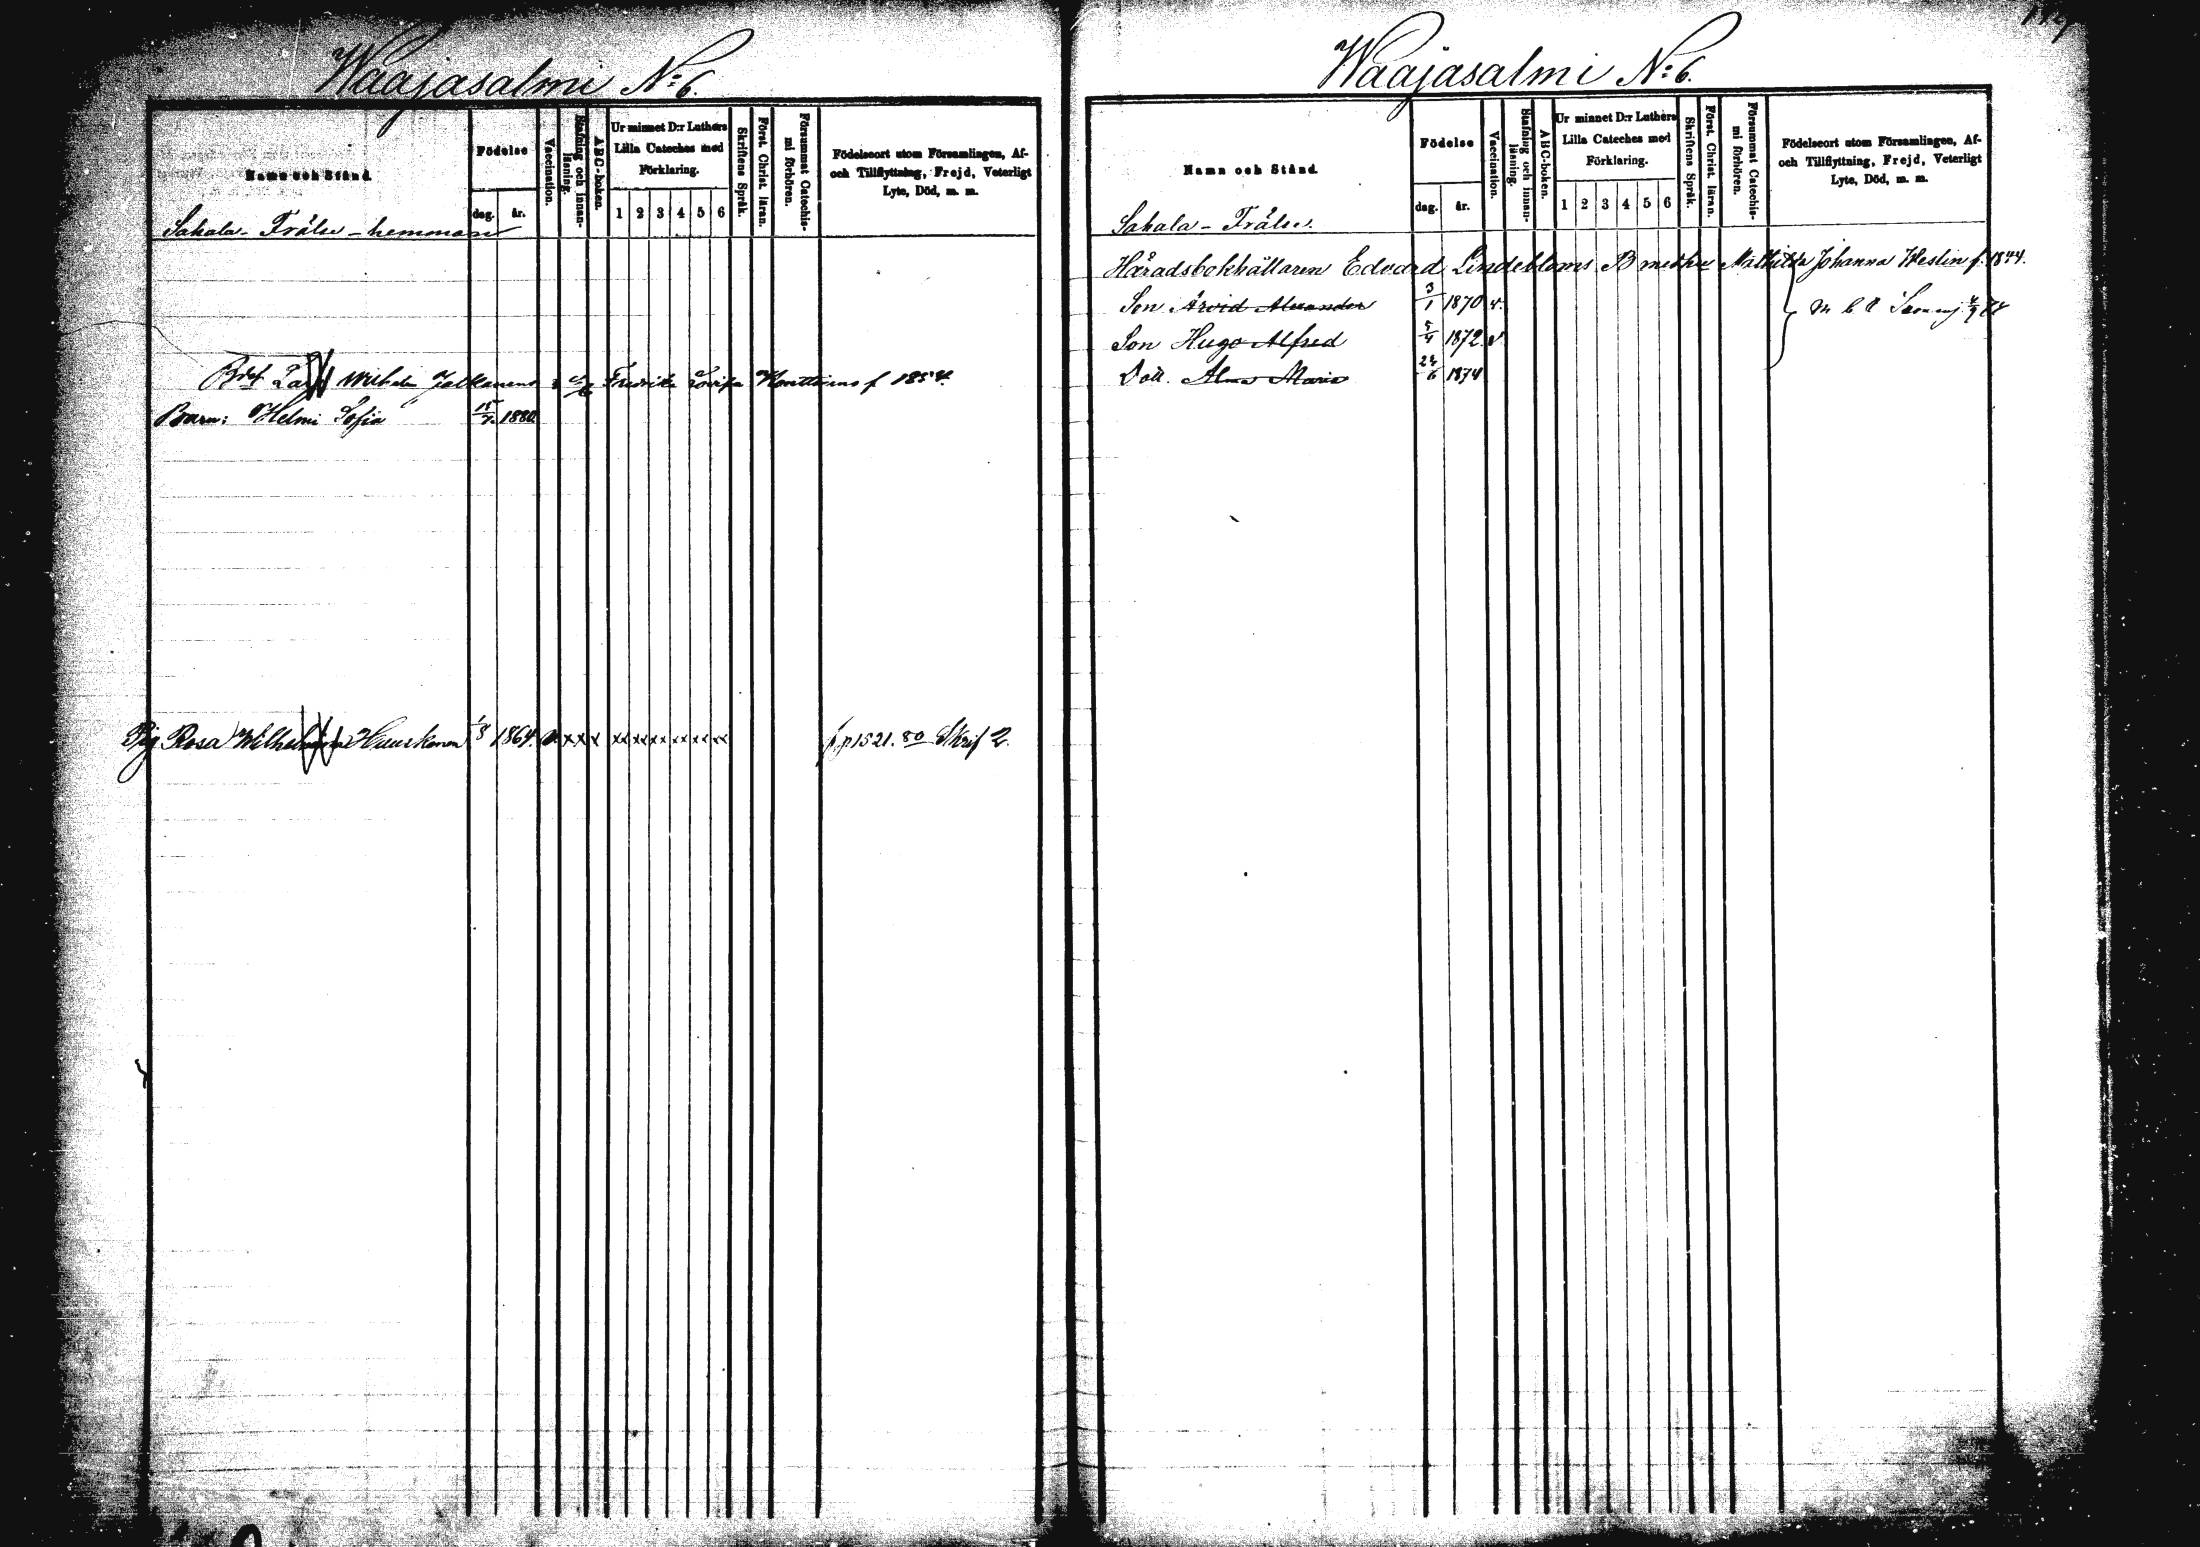 Waajasalmi N:o 6.
Namn och Stånd.
Födelse
dag. år.
Vaccination.
Stafning och innan-läsning.
ABC-boken.
Ur minnet D:r Luthers Lilla Cateches med Förklaring.
1 2 3 4 5 6
Skriftens Språk.
Först. Christ. läran.
Försummat Catechis-mi förhören.
Födelseort utom Församlingen, Af- och Tillflyttning, Frejd, Veterligt Lyte, Död, m. m.
Sahala - Frälse - hemman
Wilhelm Jalkanens Fredrika Lovisa f 1854.
Barn: Helmi Sofia 15/7 1880
Pig Rosa Wilhelmina Huuskonen 1/8 1864. x xxx x xx xx xx xx xx xx f. p 1521. 80 Skrif 2.
Waajasalmi N:o 6.
Namn och Stånd.
Födelse
dag. år.
Vaccination.
Stafning och innan-läsning.
ABC-boken.
Ur minnet D:r Luthers Lilla Cateches med Förklaring.
1 2 3 4 5 6
Skriftens Språk.
Först. Christ. läran.
Försummat Catechis-mi förhören.
Födelseort utom Församlingen, Af- och Tillflyttning, Frejd, Veterligt Lyte, Död, m. m.
Sahala - Frälse.
Häradsbokhållaren Edvard Lindebloms B med hu Mathilda Johanna Westin f. 1844.
Son Arvid Alexander 3/1 1870 v.
Son Hugo Alfred 5/4 1872 v
Dott. Alma Maria 24/6 1874